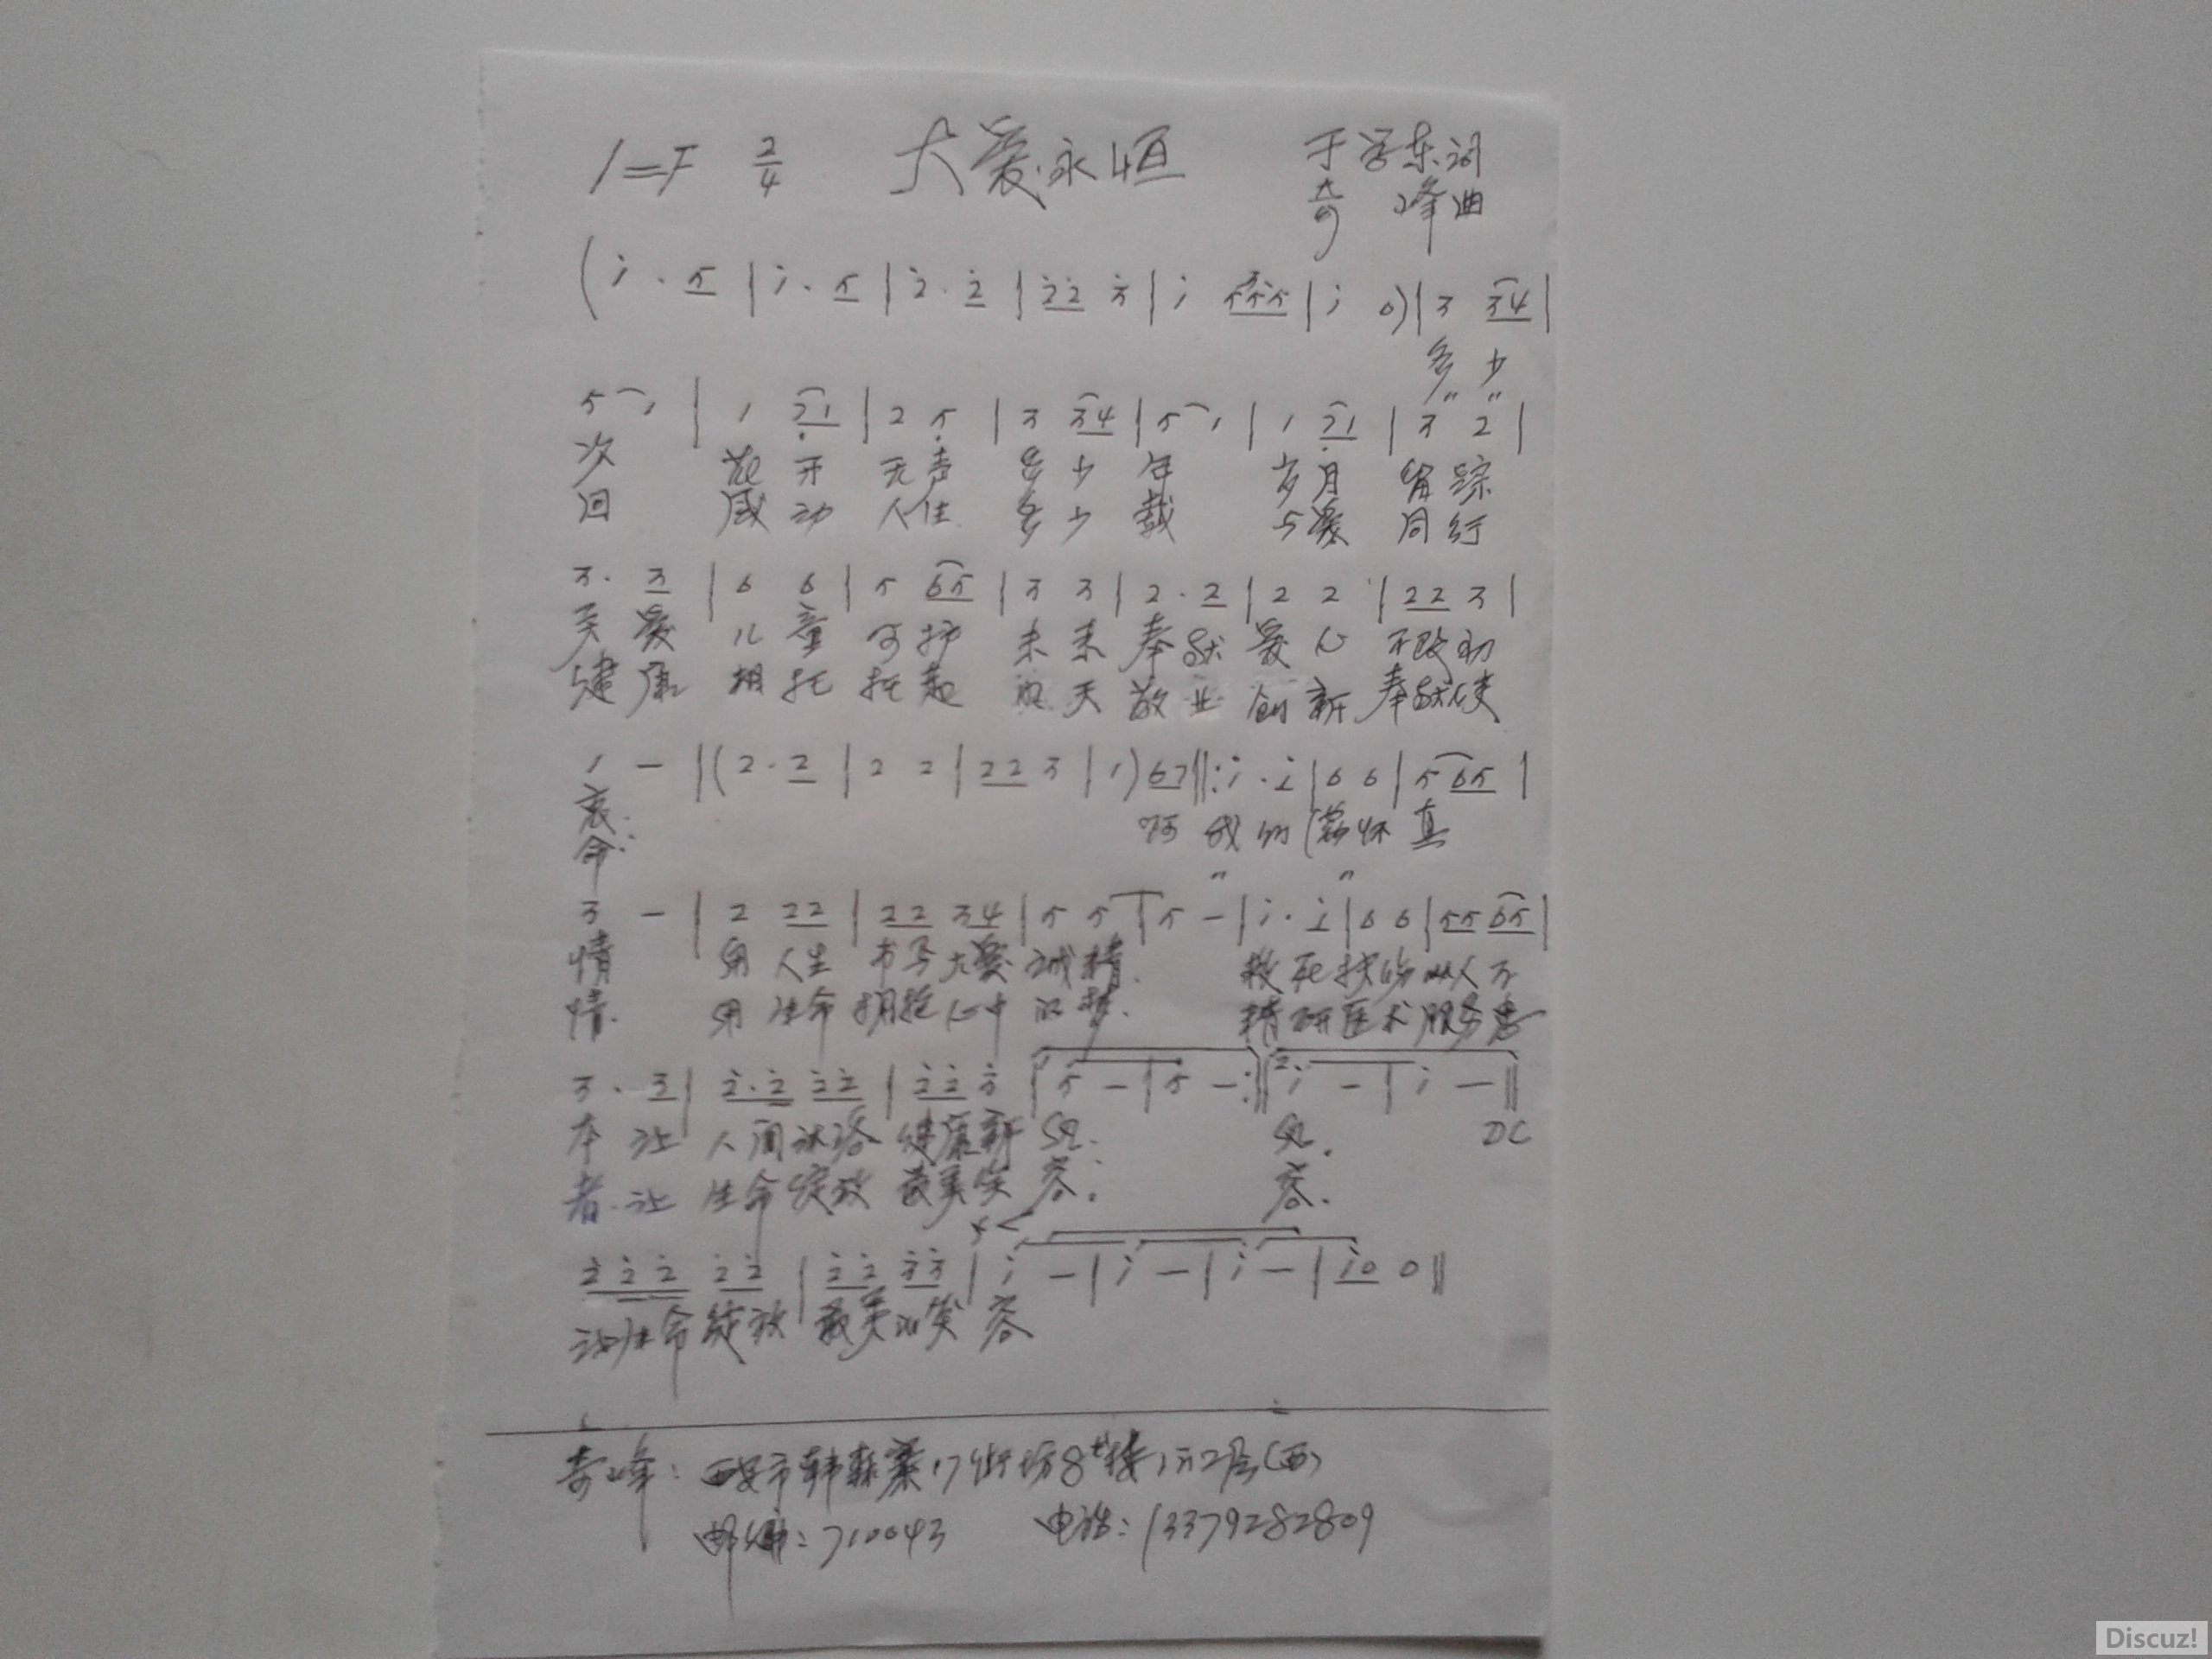 1=F 2/4 大爱永恒 于学东词
奇峰曲
(i · 5 | i · 5 | 2̇ · 2̇ | 2̇2̇ 3̇ | i 555 | i 0) | 3 34 |
多少
" "
5 1 | 1 71 | 2 5 | 3 34 | 5 1 | 1 71 | 3 2 |
次 花开 无声 多少 年 岁月 留踪
回 感动 人住 多少 载 与爱 同行
3 · 3 | 6 6 | 5 65 | 3 3 | 2 · 2 | 2 2 | 22 3 |
关爱 儿童 呵护 未来 奉献 爱心 不改初
健康 相托 托起 明天 敬业 创新 奉献使
1 - | (2 · 2 | 2 2 | 22 3 | 1) 67 ||: i · i | 6 6 | 5 65 |
衷.
命. 啊 我们满怀 真
" "
3 - | 2 22 | 22 34 | 5 5 | 5 - | i · i | 6 6 | 55 65 |
情 用 人生 书写大爱 诚精. 救死扶伤以人为
情. 用 生命 拥抱心中 的梦. 精研医术服务患
3 · 3 | 2̇·2̇ 2̇2̇ | 2̇2̇ 3̇ | 1. 5 - | 5 - :|| 2. i - | i - ||
本 让 人间沐浴 健康新风. 风. DC
者. 让 生命绽放 最美笑容. 容.
2̇2̇2̇ 2̇2̇ | 2̇2̇ 3̇3̇ | i - | i - | i - | i0 0 ||
让生命绽放 最美的笑容
奇峰: 西安市韩森寨17街坊8#楼1门2层(西)
邮编: 710043 电话: 13379282809
Discuz!